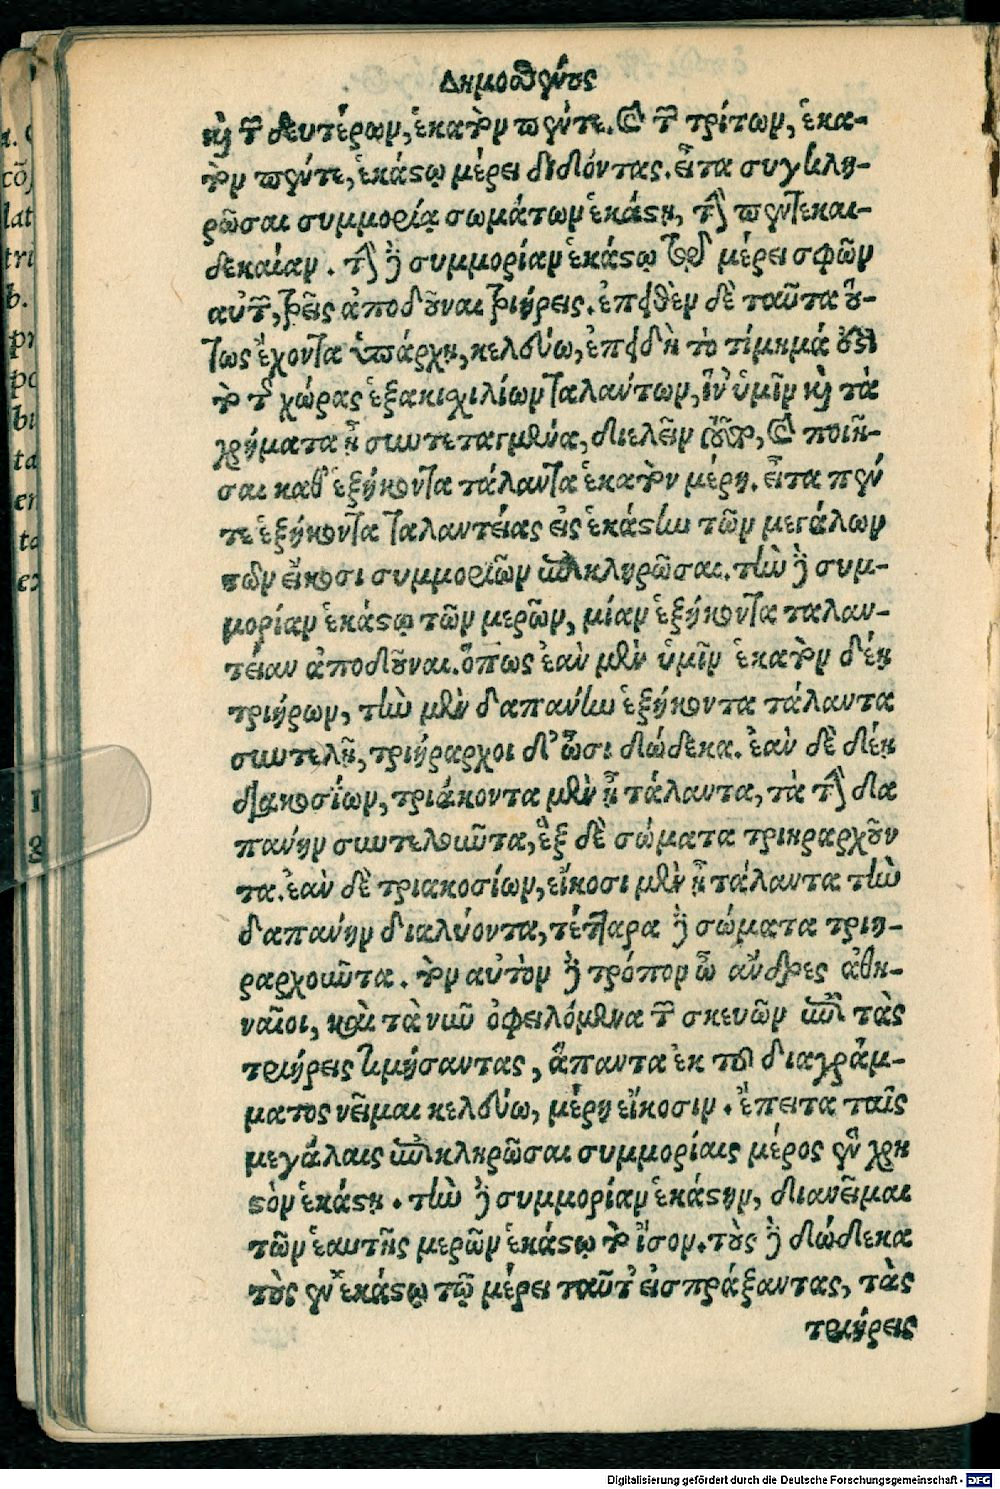 Δημοσθένους
καὶ τῶν δευτέρων, ἑκατὸν πέντε. καὶ τῶν τρίτων, ἑκα-
τὸν πέντε, ἑκάστῳ μέρει διδόντας. εἶτα συγκλη-
ρῶσαι συμμορίᾳ σωμάτων ἑκάστῃ, τὴν πεντεκαι-
δεκαίαν. τὴν δὲ συμμορίαν ἑκάστῳ τῷ μέρει σφῶν
αὐτῶν, τρεῖς ἀποδοῦναι τριήρεις. ἐπειδὰν δὲ ταῦτα οὕ-
τως ἔχοντα ὑπάρχῃ, κελεύω, ἐπειδὴ τὸ τίμημά ἐστι
τὸ τῆς χώρας ἑξακιχιλίων ταλάντων, ἵν' ὑμῖν καὶ τὰ
χρήματα ᾖ συντεταγμένα, διελεῖν τοῦτο, καὶ ποιῆ-
σαι καθ' ἑξήκοντα τάλαντα ἑκατὸν μέρη. εἶτα πέν
τε ἑξήκοντα ταλαντείας εἰς ἑκάστην τῶν μεγάλων
τῶν εἴκοσι συμμοριῶν ἐπικληρῶσαι. τὴν δὲ συμ-
μορίαν ἑκάστῳ τῶν μερῶν, μίαν ἑξήκοντα ταλαν-
τείαν ἀποδοῦναι. ὅπως ἐὰν μὲν ὑμῖν ἑκατὸν δέῃ
τριήρων, τὴν μὲν δαπάνην ἑξήκοντα τάλαντα
συντελῇ, τριήραρχοι δ' ὦσι δώδεκα. ἐὰν δὲ δέῃ
διακοσίων, τριάκοντα μὲν ᾖ τάλαντα, τὰ τὴν δα
πάνην συντελοῦντα, ἓξ δὲ σώματα τριηραρχοῦν
τα. ἐὰν δὲ τριακοσίων, εἴκοσι μὲν ᾖ τάλαντα τὴν
δαπάνην διαλύοντα, τέτταρα δὲ σώματα τριη-
ραρχοῦντα. τὸν αὐτὸν δὲ τρόπον ὦ ἄνδρες ἀθη-
ναῖοι, καὶ τὰ νῦν ὀφειλόμενα τῶν σκευῶν ἐπὶ τὰς
τριήρεις τιμήσαντας, ἅπαντα ἐκ τοῦ διαγράμ-
ματος νεῖμαι κελεύω, μέρη εἴκοσιν. ἔπειτα ταῖς
μεγάλαις ἐπικληρῶσαι συμμορίαις μέρος ἓν χρή
στον ἑκάστῃ. τὴν δὲ συμμορίαν ἑκάστην, διανεῖμαι
τῶν ἑαυτῆς μερῶν ἑκάστῳ τὸ ἴσον. τοὺς δὲ δώδεκα
τοὺς ἐν ἑκάστῳ τῷ μέρει ταῦτ' εἰσπράξαντας, τὰς
τριήρεις
Digitalisierung gefördert durch die Deutsche Forschungsgemeinschaft - DFG